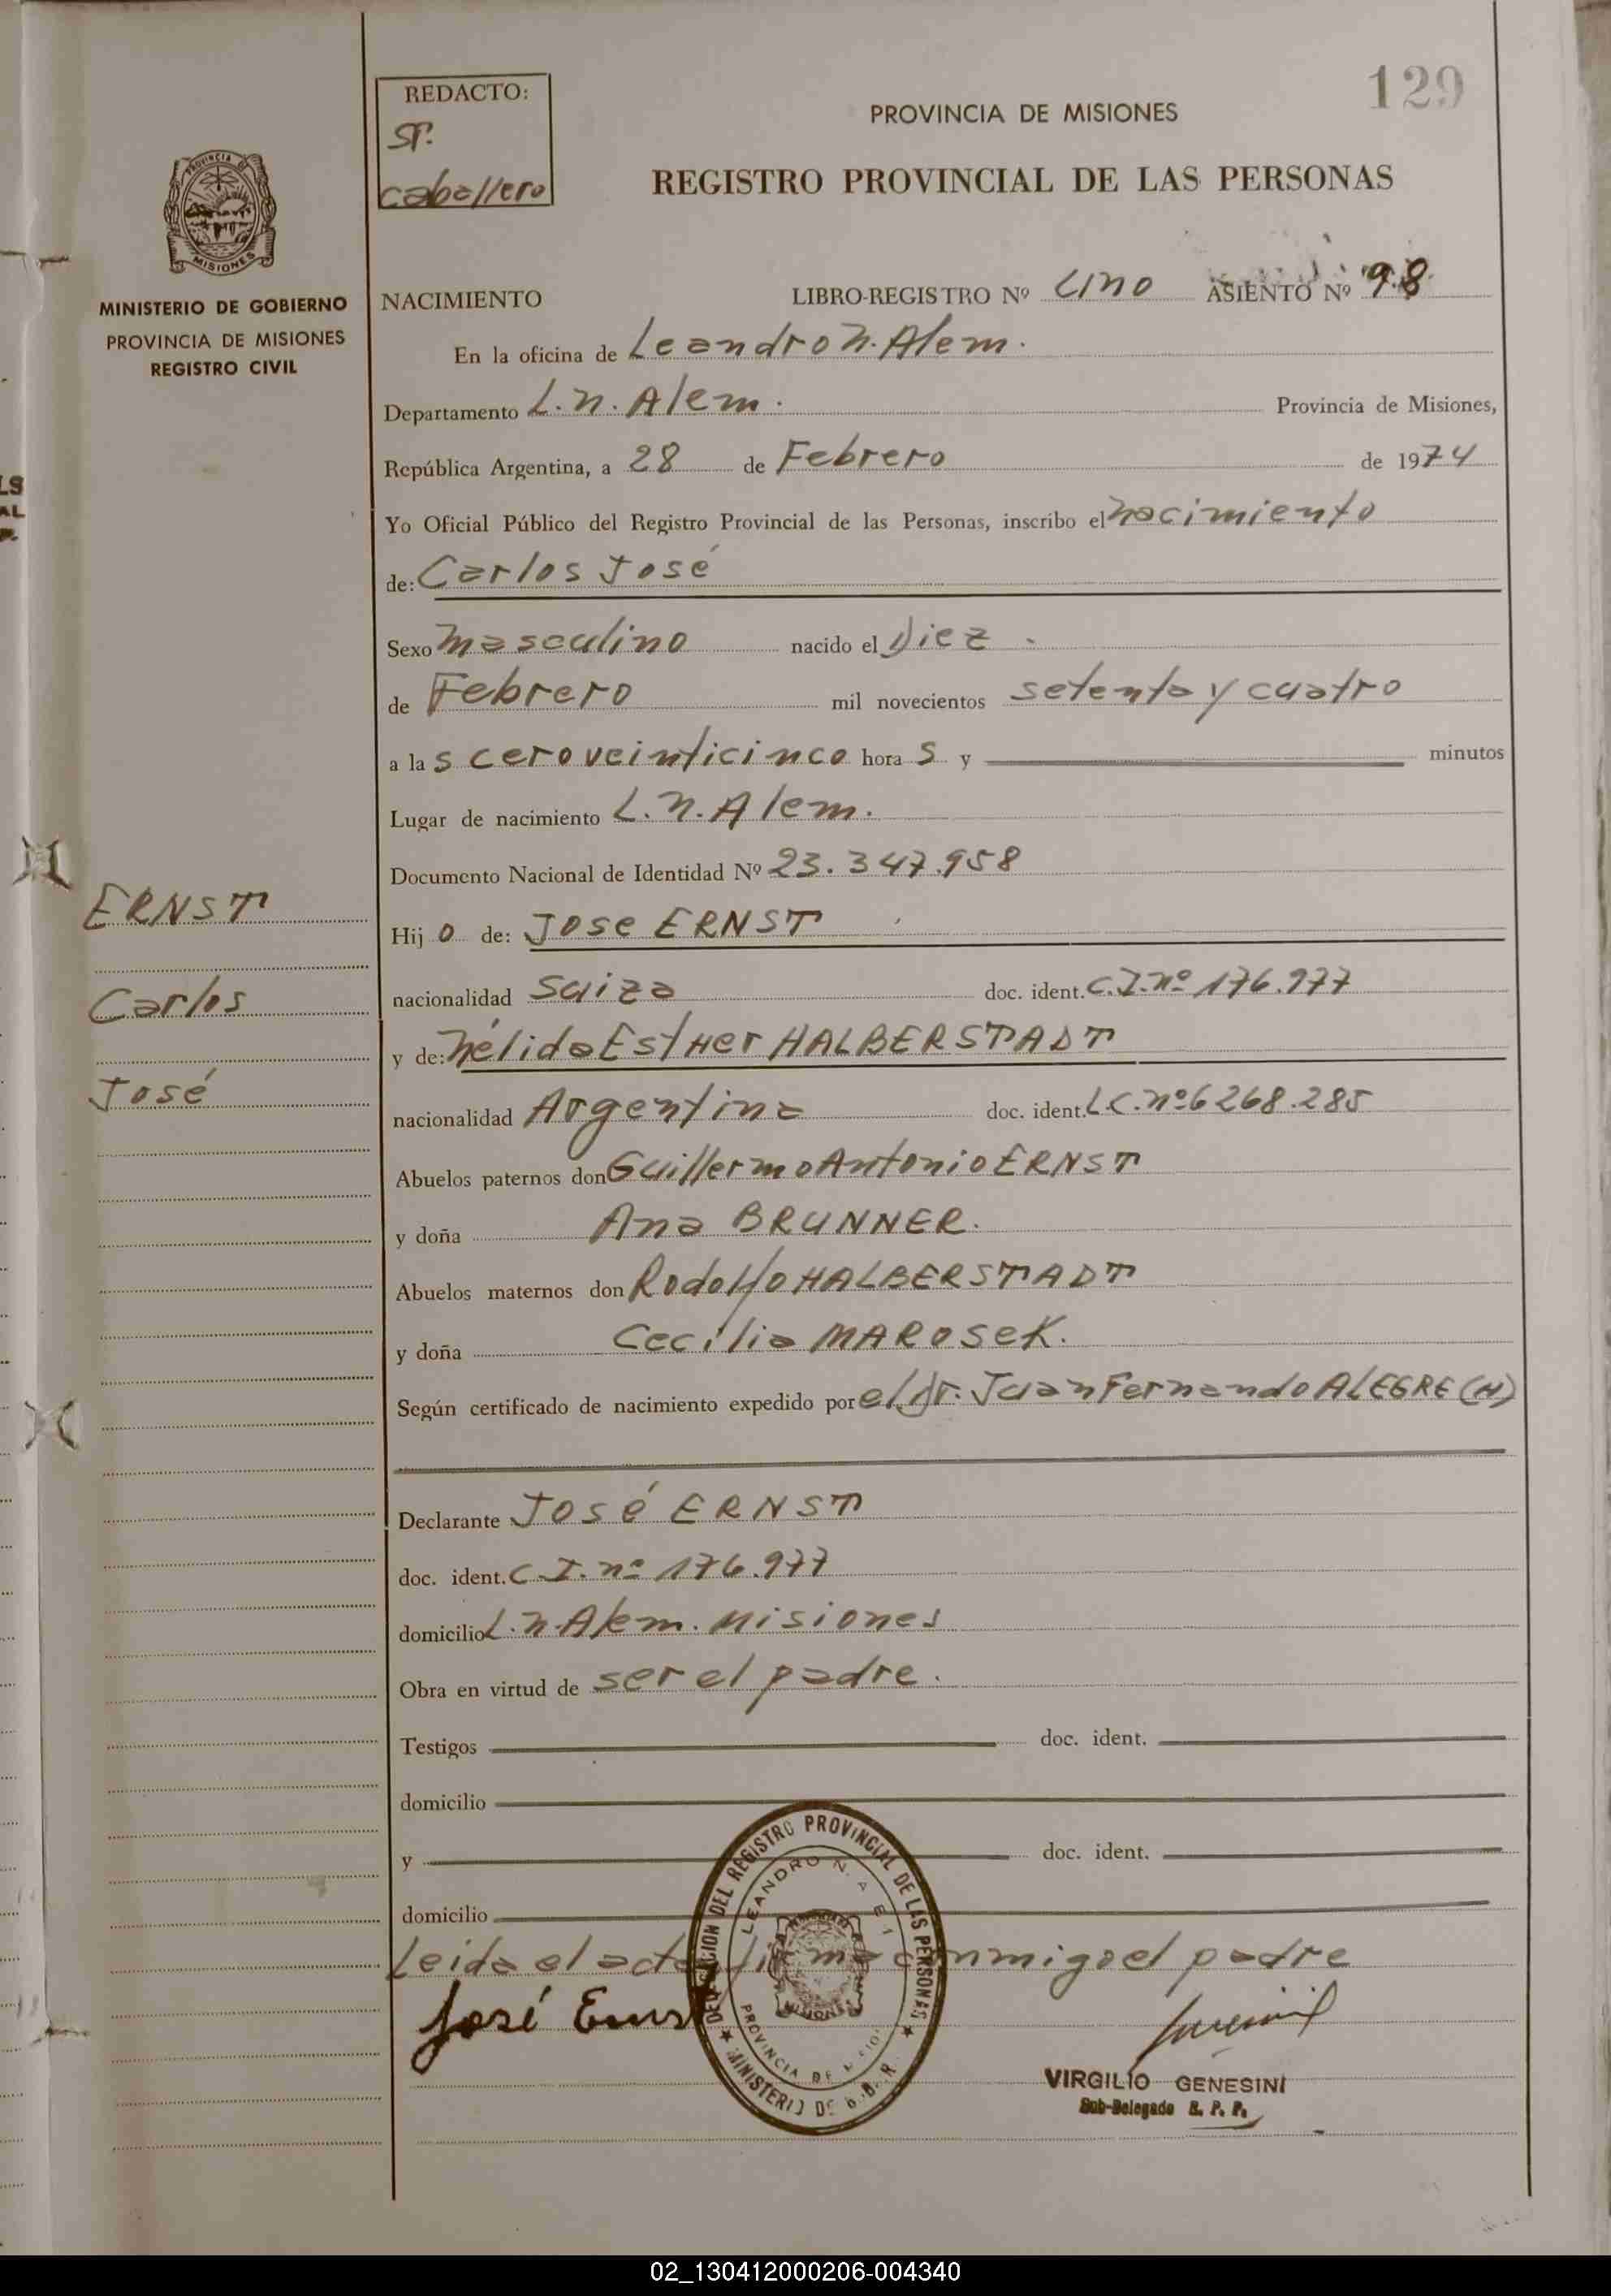 129
REDACTO:
Sr.
caballero
PROVINCIA DE MISIONES
REGISTRO PROVINCIAL DE LAS PERSONAS
PROVINCIA DE
MISIONES
MINISTERIO DE GOBIERNO
PROVINCIA DE MISIONES
REGISTRO CIVIL
NACIMIENTO LIBRO-REGISTRO Nº UNO ASIENTO Nº 98
En la oficina de Leandro N. Alem.
Departamento L. N. Alem. Provincia de Misiones,
República Argentina, a 28 de Febrero de 1974
Yo Oficial Público del Registro Provincial de las Personas, inscribo el nacimiento
de: Carlos José
Sexo masculino nacido el Diez
de Febrero mil novecientos setenta y cuatro
a las cero veinticinco horas y minutos
Lugar de nacimiento L. N. Alem.
Documento Nacional de Identidad Nº 23.347.958
ERNST
Carlos
José
Hijo de: Jose ERNST
nacionalidad Suiza doc. ident. C.I. nº 176.977
y de: Nélida EstHer HALBERSTADT
nacionalidad Argentina doc. ident. L.C. nº 6268.285
Abuelos paternos don Guillermo Antonio ERNST
y doña Ana BRUNNER.
Abuelos maternos don Rodolfo HALBERSTADT
y doña Cecilia MAROSEK.
Según certificado de nacimiento expedido por el dr. Juan Fernando ALEGRE (H)
Declarante José ERNST
doc. ident. C.I. nº 176.977
domicilio L. N. Alem. Misiones
Obra en virtud de ser el padre.
Testigos doc. ident.
domicilio
y doc. ident.
domicilio
Leida el acta firma conmigo el padre
José Ernst
DELEGACION DEL REGISTRO PROVINCIAL DE LAS PERSONAS
LEANDRO N.
PROVINCIA DE
MINISTERIO DE
VIRGILIO GENESINI
Sub-Delegado R. P. P.
02_130412000206-004340